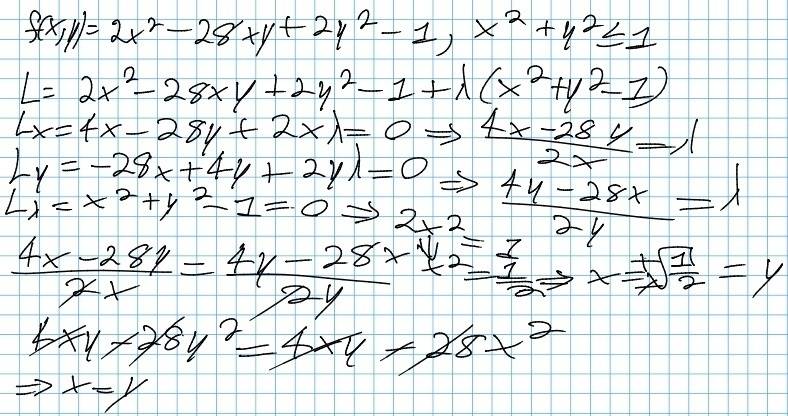 f(x,y)= 2x² - 28xy + 2y² - 1, x² + y² ≤ 1
L = 2x² - 28xy + 2y² - 1 + λ(x² + y² - 1)
Lx = 4x - 28y + 2xλ = 0 ⇒ (4x - 28y)/(2x) = λ
Ly = -28x + 4y + 2yλ = 0 ⇒ (4y - 28x)/(2y) = λ
Lλ = x² + y² - 1 = 0 ⇒ 2x² = 1
(4x - 28y)/(2x) = (4y - 28x)/(2y) x² = 1/2 ⇒ x = ±√(1/2) = y
4xy - 28y² = 4xy - 28x²
⇒ x = y